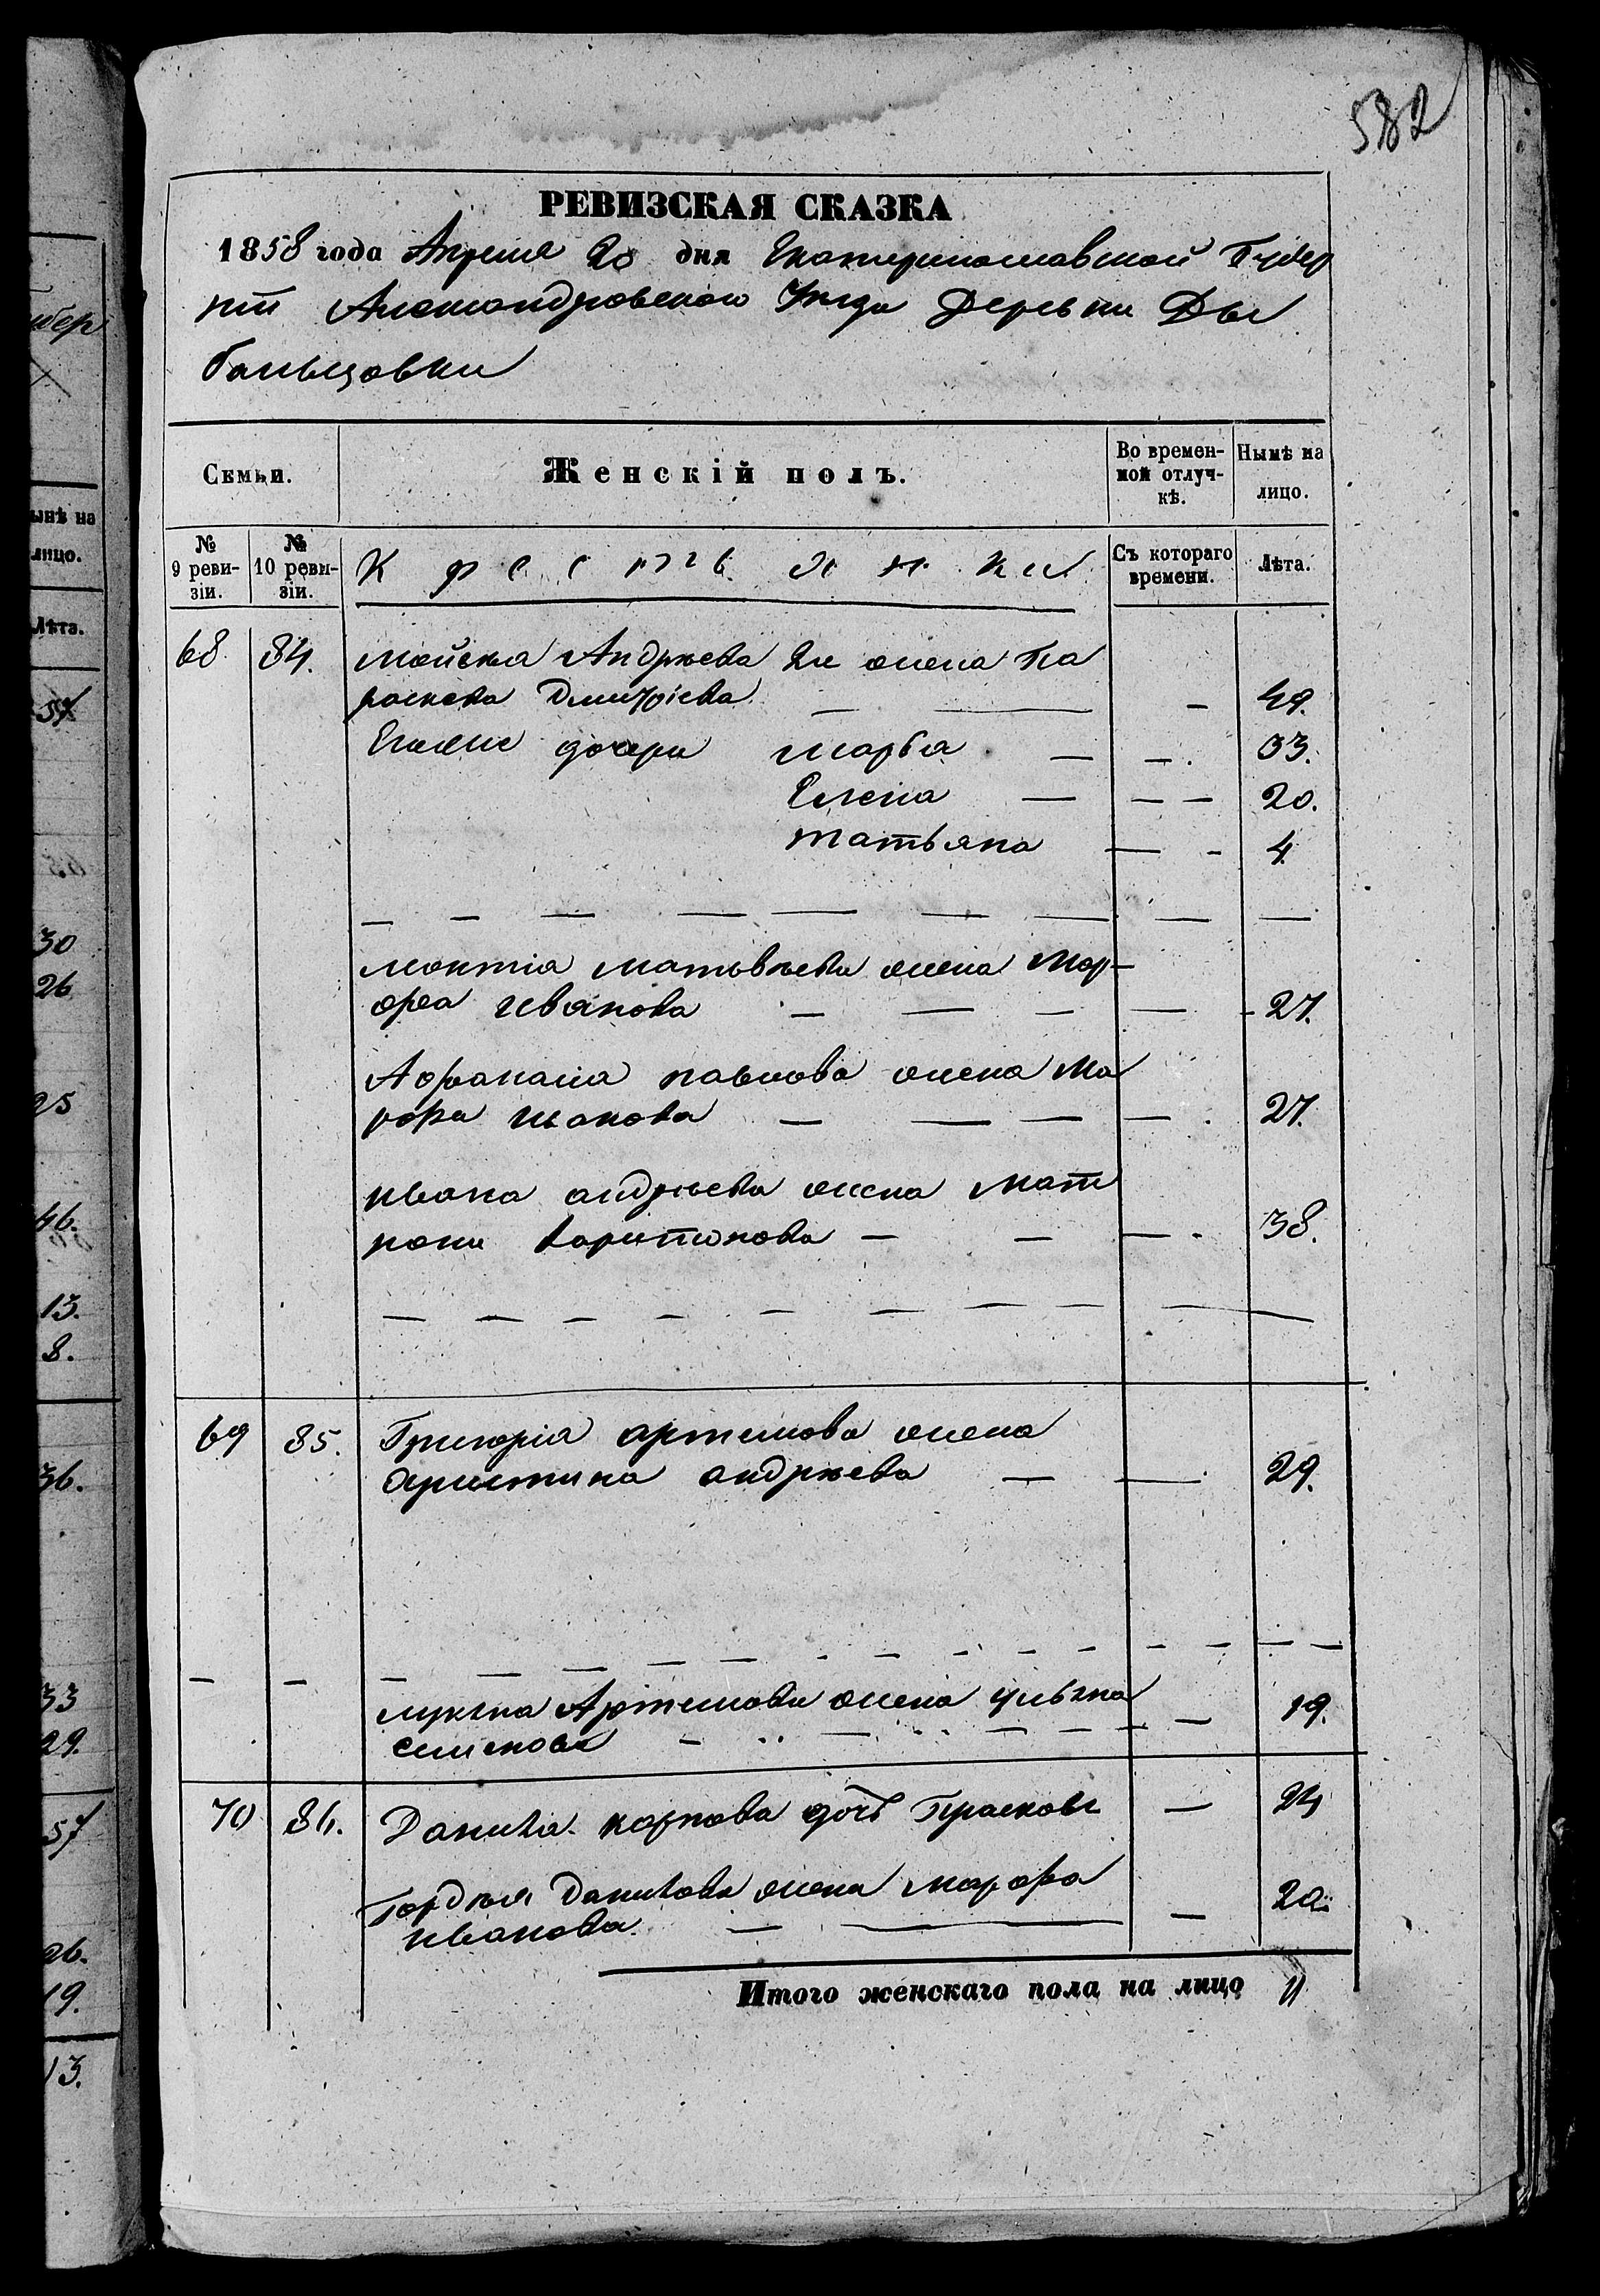 582
РЕВИЗСКАЯ СКАЗКА
1858 года Апреля 20 дня Екатеринославской Губер
нiи Александровскаго Уезда Деревни Ды
баньцовки
Семьи.
Женскій полъ.
Во времен-
ной отлуч-
кѣ.
Нынѣ на
лицо.
№
9 реви-
зіи.
№
10 реви-
зіи.
Крестьянки
Съ котораго
времени.
Лѣта.
68. 84. Мойсѣя Андрѣева 2я жена Па
раскева Дмитріева — — — 49.
Его дочери Марфа — — 33.
Елена — — — 20.
Татьяна — - 4
Матвѣева жена Мар-
фа Иванова — — — — 27.
Афанасія Павлова жена Ма
рфа Иванова — — — — 27.
Ивана Андрѣева жена Мат
рона Харитонова — — — 38.
69 85. Григорія Артемова жена
Христина Андрѣева — — 29.
Лукьяна Артемова жена Ульяна
Семенова — 19.
70 86. Данила Карпова дочь Прасковя — 24
Гордѣя Данилова жена Марфа
Иванова — — — 20
Итого женскаго пола на лицо 11
57
30
26
25
46.
13.
8.
36.
33
29.
57
26.
19.
13.